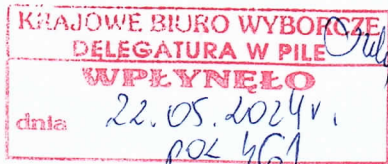 KRAJOWE BIURO WYBORCZE
DELEGATURA W PILE
WPŁYNĘŁO
dnia 22.05.2024r.
poz 461